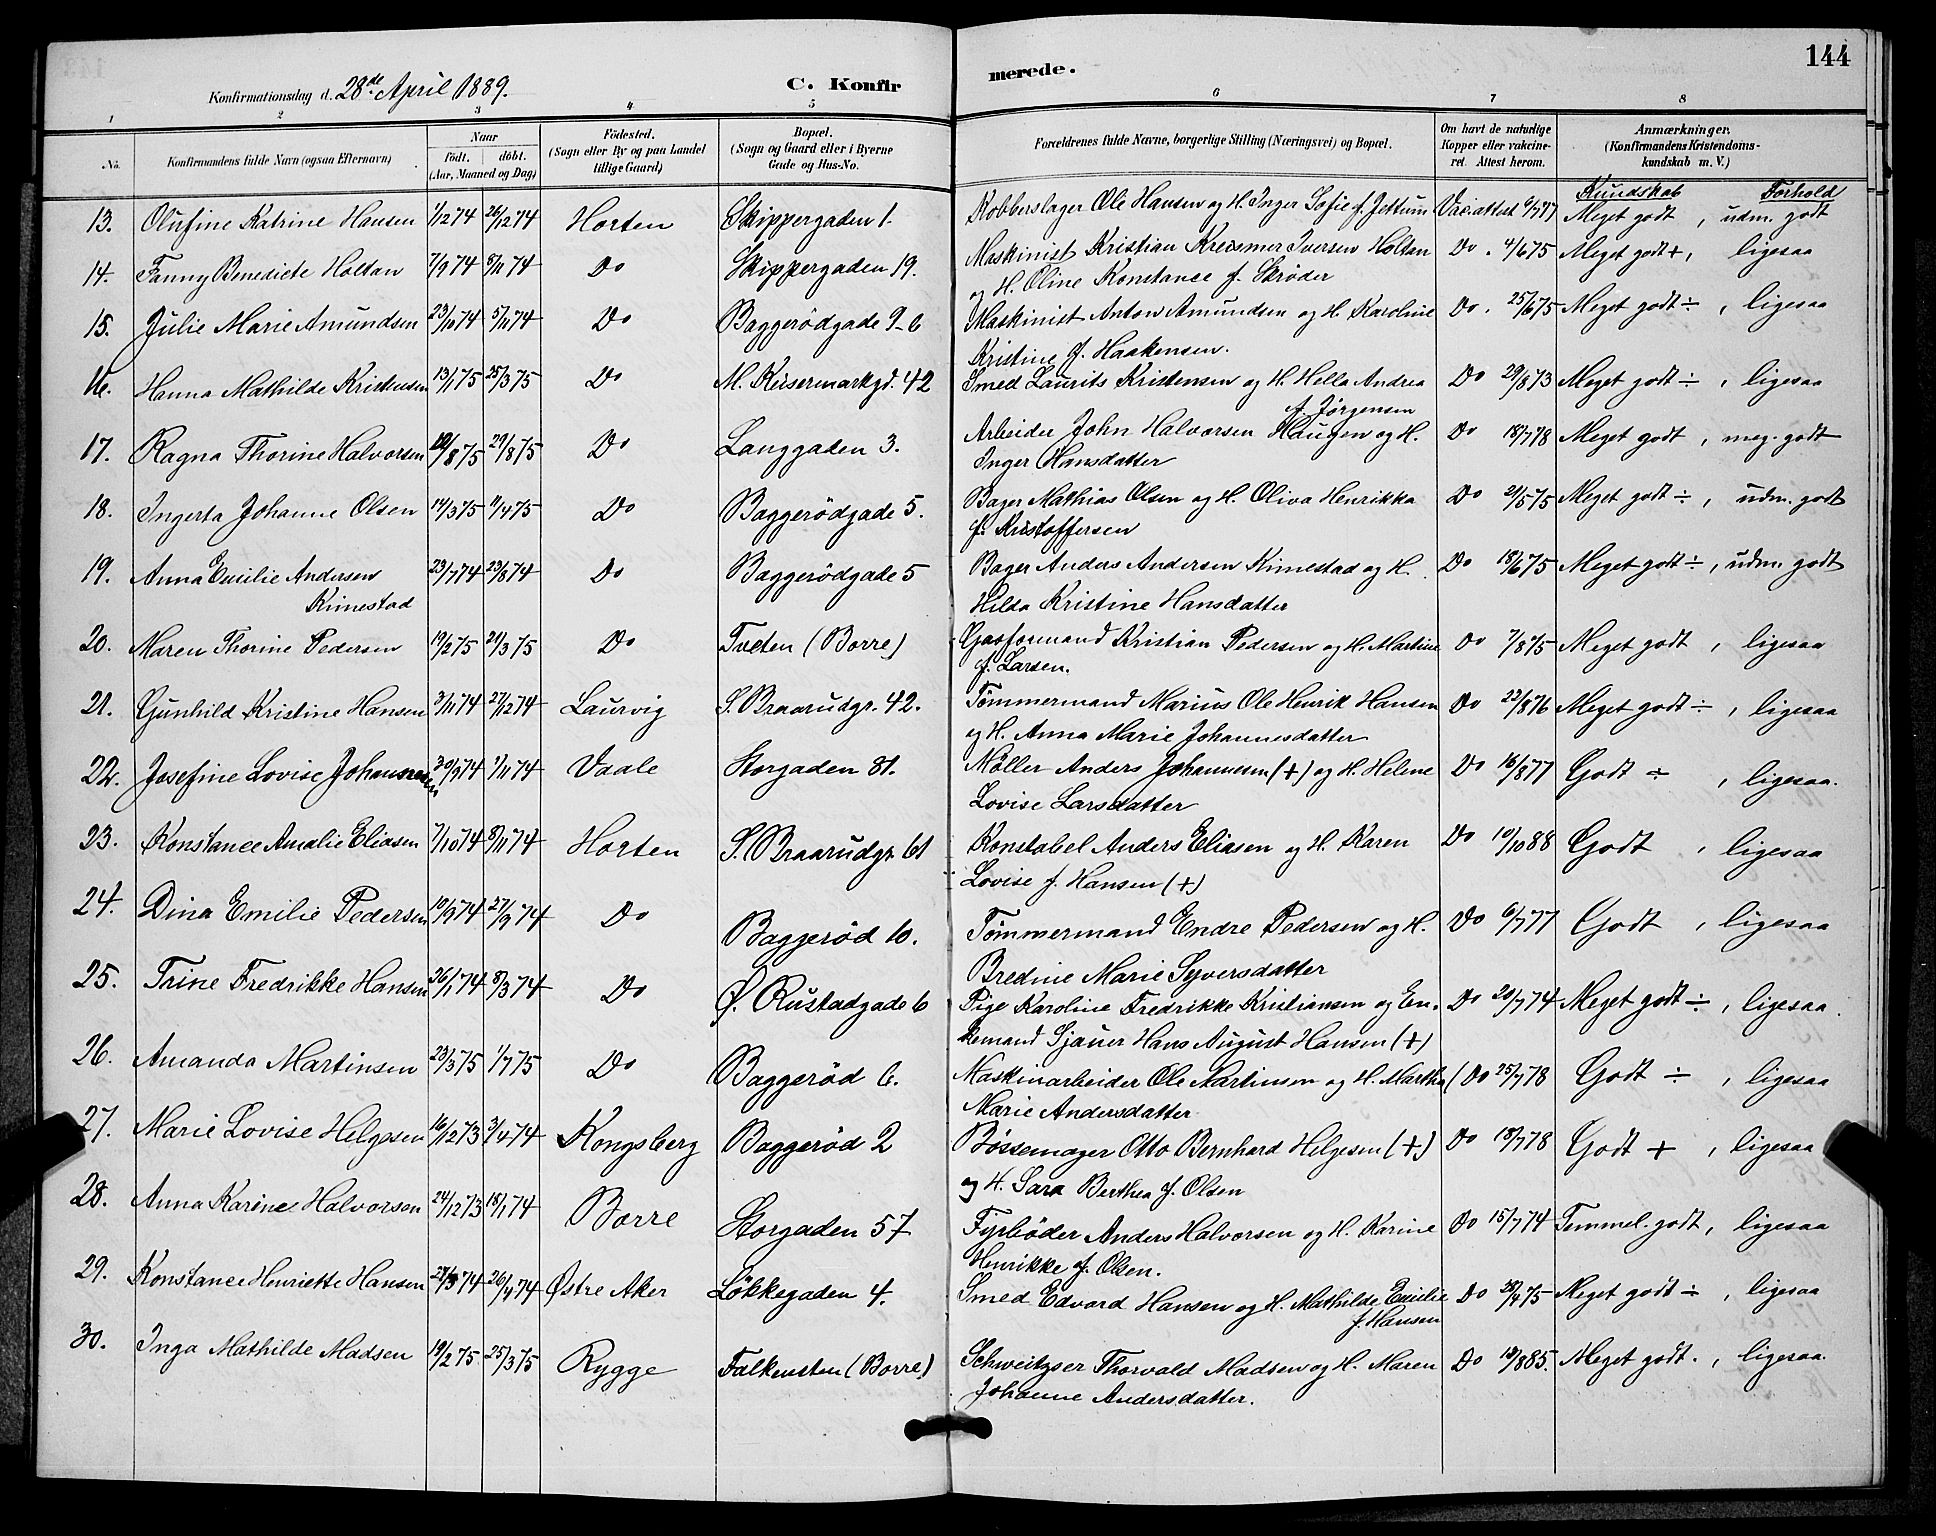 144
Konfirmationsdag d. 28de April 1889. C. Konfirmerede.
1 2 3 4 5 6 7 8
No. Konfirmandens fulde Navn (ogsaa Efternavn) Naar födt. döbt. (Aar, Maaned og Dag) Födested. (Sogn eller By og paa Landet tillige Gaard) Bopæl. (Sogn og Gaard eller i Byerne Gade og Hus-No. Forældrenes fulde Navne, borgerlige Stilling (Næringsvei) og Bopæl. Om havt de naturlige Kopper eller vakcineret. Attest herom. Anmærkninger. (Konfirmandens Kristendomskundskab m. V.)
Kundskab Forhold
13. Olufine Katrine Hansen 1/12 74 26/12 74 Horten Skippergaden 1. Kobberslager Ole Hansen og H. Inger Sofie f. Jettum Vacattest 6/7 77 Meget godt, udm. godt
14. Fanny Benedicte Holtan 7/9 74 8/11 74 Do Skippergaden 19. Maskinist Kristian Iversen Holtan Do. 4/6 75 Meget godt +, ligesaa
og H. Oline Konstance f. Skröder
15. Julie Marie Amundsen 23/10 74 5/11 74 Do Baggerödgade 9-6 Maskinist Anton Amundsen og H. Karoline Do. 25/6 75 Meget godt ÷, ligesaa
Kristine f. Haakensen.
16. Hanna Mathilde Kristensen 13/1 75 25/3 75 Do M. Keisermarkgd. 42 Smed Laurits Kristensen og H. Hella Andrea Do 29/8 73 Meget godt ÷, ligesaa
f. Jørgensen
17. Ragna Thorine Halvorsen 12/8 75 29/8 75 Do Langgaden 3. Arbeider John Halvorsen Haugen og H. Do 18/7 78 Meget godt, meg. godt
Inger Hansdatter
18. Ingerta Johanne Olsen 14/3 75 11/4 75 Do Baggerödgade 5. Bager Mathias Olsen og H. Oliva Henrikka Do 21/5 75 Meget godt ÷, udm. godt
f. Kristoffersen
19. Anna Emilie Andersen 23/7 74 23/8 74 Do Baggerödgade 5 Bager Anders Andersen Kimestad og H. Do 18/6 75 Meget godt ÷, udm. godt
Kimestad Hilda Kristine Hansdatter
20. Maren Thorine Pedersen 19/2 75 21/3 75 Do Tveten (Borre) Gasformand Kristian Pedersen og H. Martine Do 7/8 75 Meget godt, ligesaa
f. Larsen.
21. Gunhild Kristine Hansen 3/11 74 27/12 74 Laurvig S. Braarudgr. 42. Tømmermand Marius Ole Henrik Hansen Do 22/8 76 Meget godt ÷, ligesaa
og H. Anna Marie Johannesdatter
22. Josefine Lovise Johannesen 30/9 74 1/11 74 Vaale Storgaden 81. Møller Anders Johannesen (+) og H. Helene Do 16/8 77 Godt ÷, ligesaa.
Lovise Larsdatter
23. Konstance Amalie Eliasen 7/10 74 8/11 74 Horten S. Braarudgr. 61 Konstabel Anders Eliasen og H. Karen Do 10/10 88 Godt, ligesaa
Lovise f. Hansen (+)
24. Dina Emilie Pedersen 10/9 74 27/9 74 Do Baggeröd 10. Tömmermand Endre Pedersen og H. Do 6/7 77 Godt, ligesaa
Bredine Marie Syversdatter
25. Trine Fredrikke Hansen 26/1 74 8/3 74 Do Ø. Rustadgade 6 Pige Karoline Fredrikke Kristiansen og En- Do 20/7 74 Meget godt ÷, ligesaa.
kemand Sjauer Hans August Hansen (+)
26. Amanda Martinsen 23/3 75 1/7 75 Do Baggerød 6. Maskinarbeider Ole Martinsen og H. Martha (Do 25/7 78 Godt ÷, ligesaa
Marie Andersdatter
27. Marie Lovise Helgesen 16/12 73 3/4 74 Kongsberg Baggerød 2 Bössemager Otto Bernhard Helgesen (+) Do 18/7 78 Godt +, ligesaa
og H. Sara Berthea f. Olsen
28. Anna Karine Halvorsen 24/12 73 18/1 74 Borre Storgaden 57 Fyrbøder Anders Halvorsen og H. Karine Do 15/7 74 Temmel. godt, ligesaa
Henrikke f. Olsen.
29. Konstance Henriette Hansen 3 74 26/4 74 Østre Aker Løkkegaden 4. Smed Edvard Hansen og H. Mathilde Emilie Do 4 75 Meget godt ÷, ligesaa
f. Hansen
30. Inga Mathilde Madsen 19/2 75 25/3 75 Rygge Falkensten (Borre) Schweitzer Thorvald Madsen og H. Maren Do 8 85. Meget godt., ligesaa.
Johanne Andersdatter.